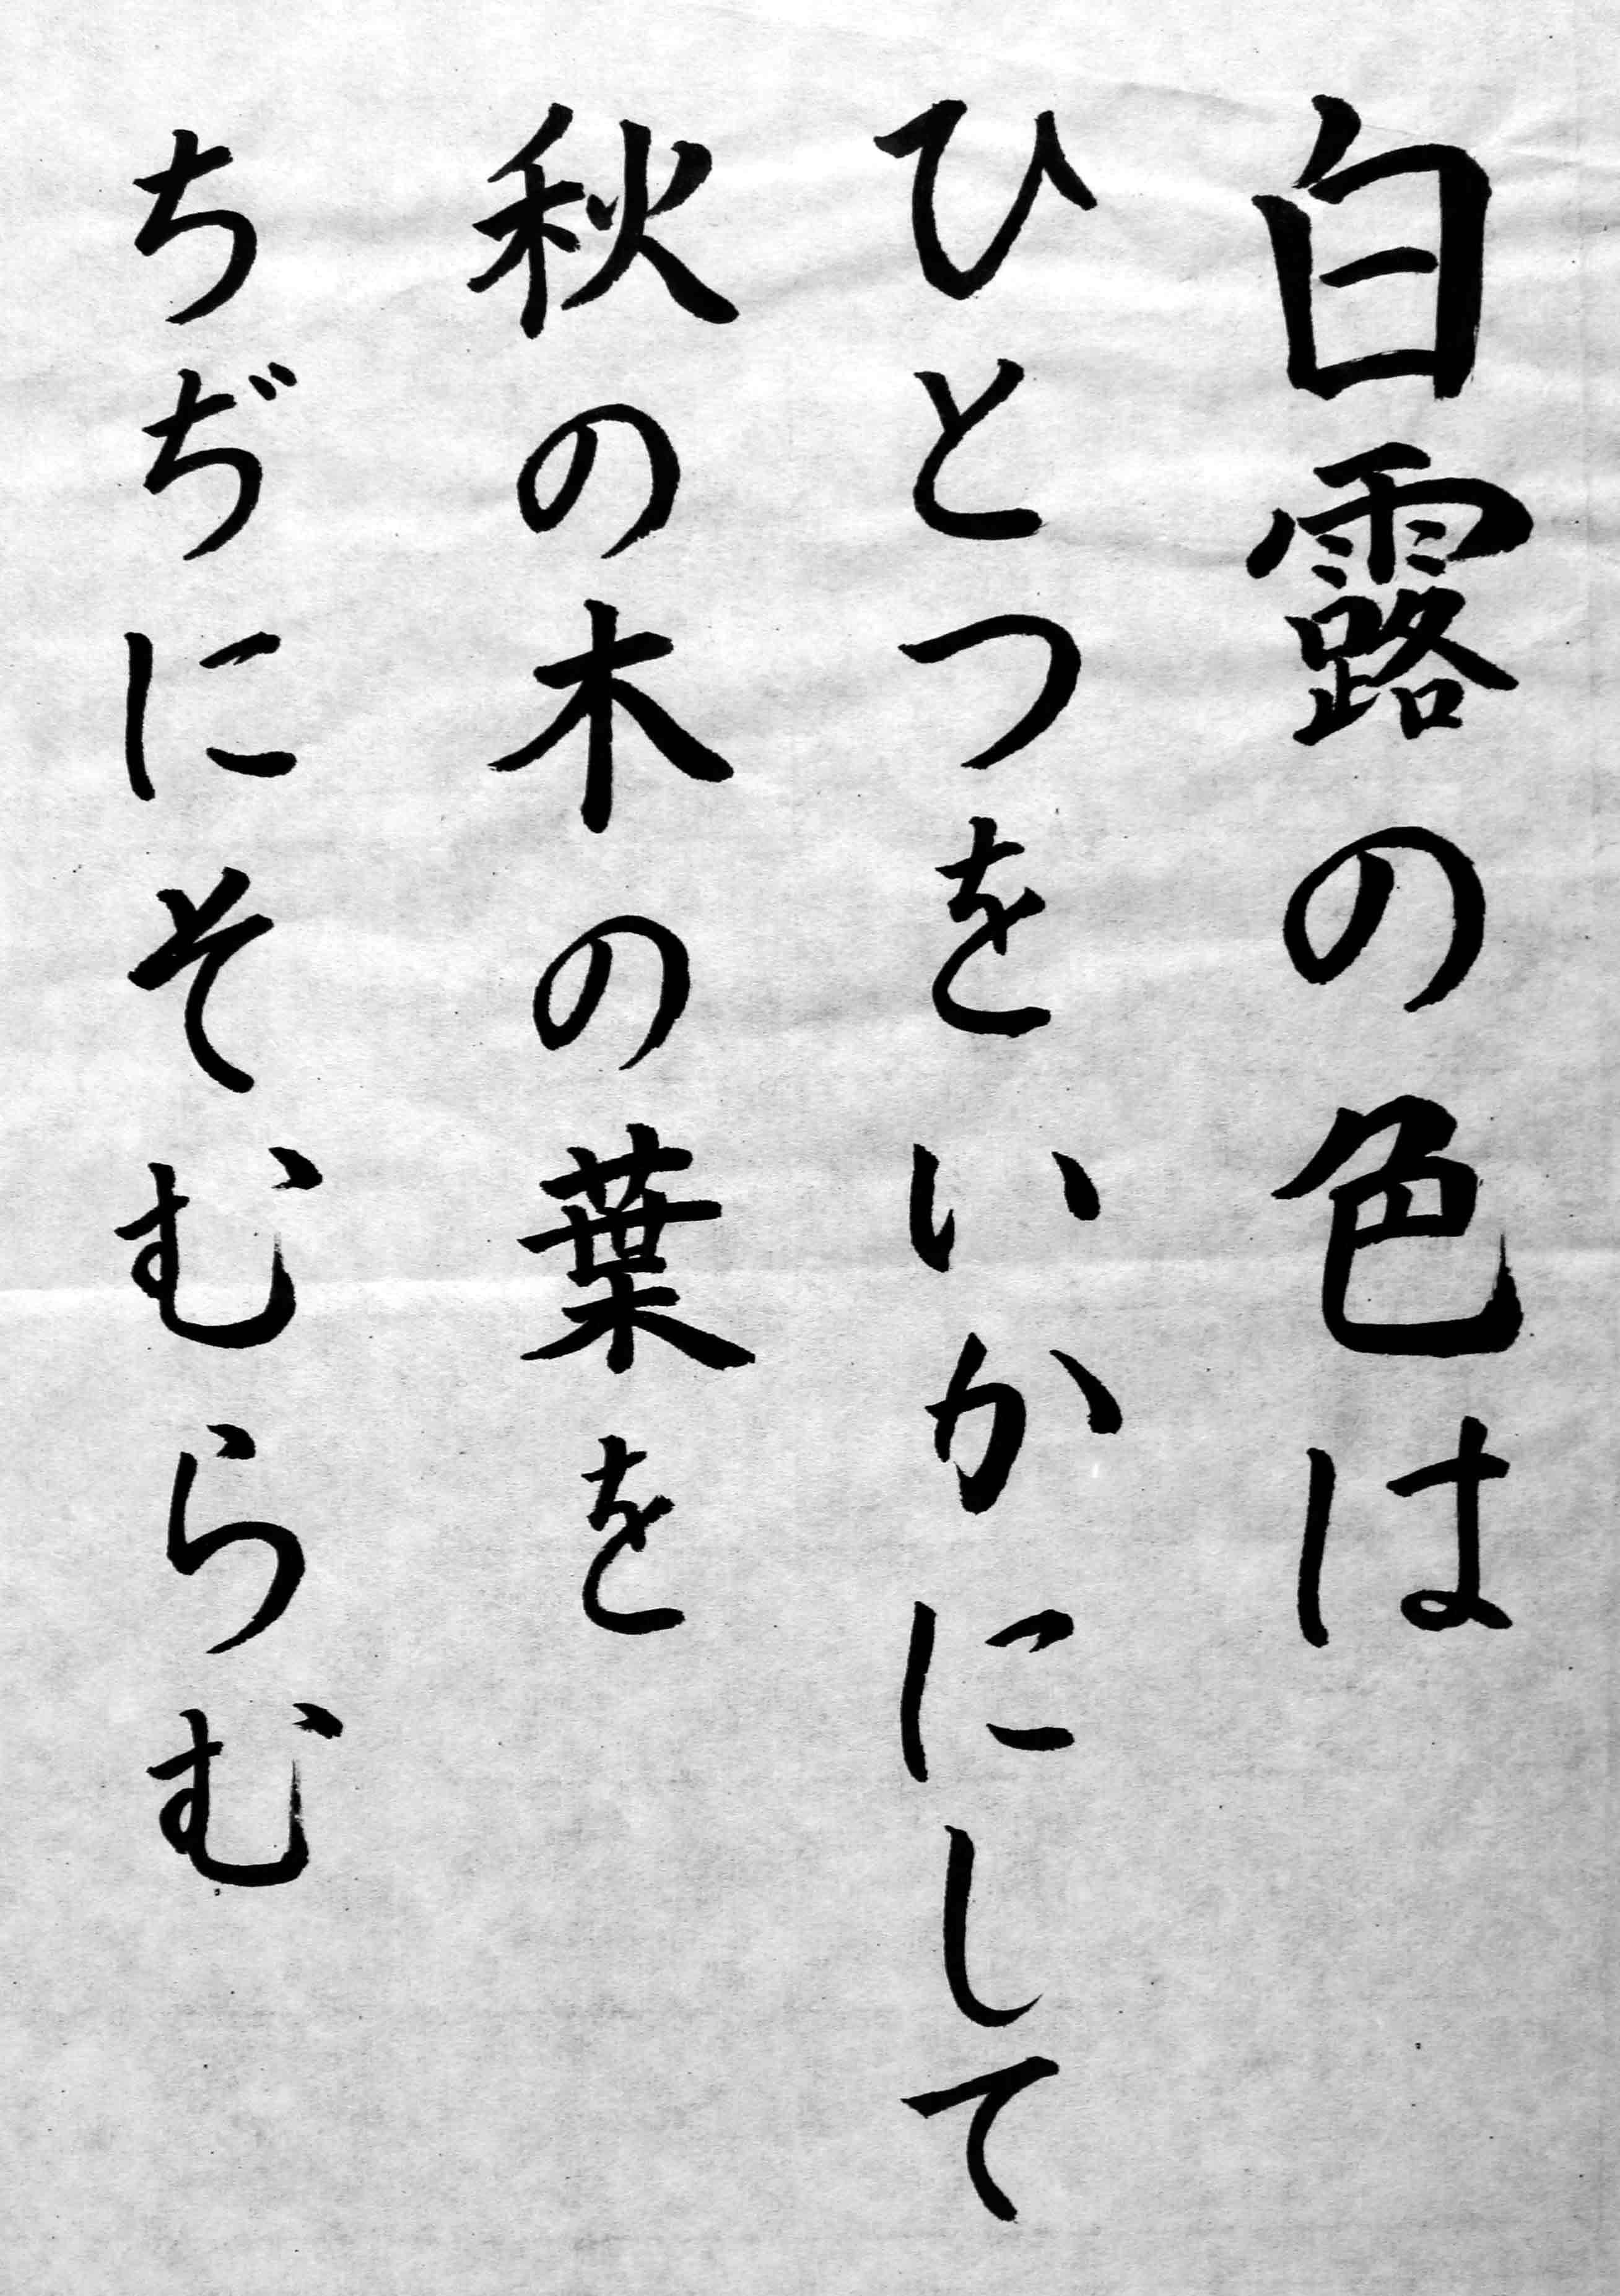 白露の色は
ひとつをいかにして
秋の木の葉を
ちぢにそむらむ